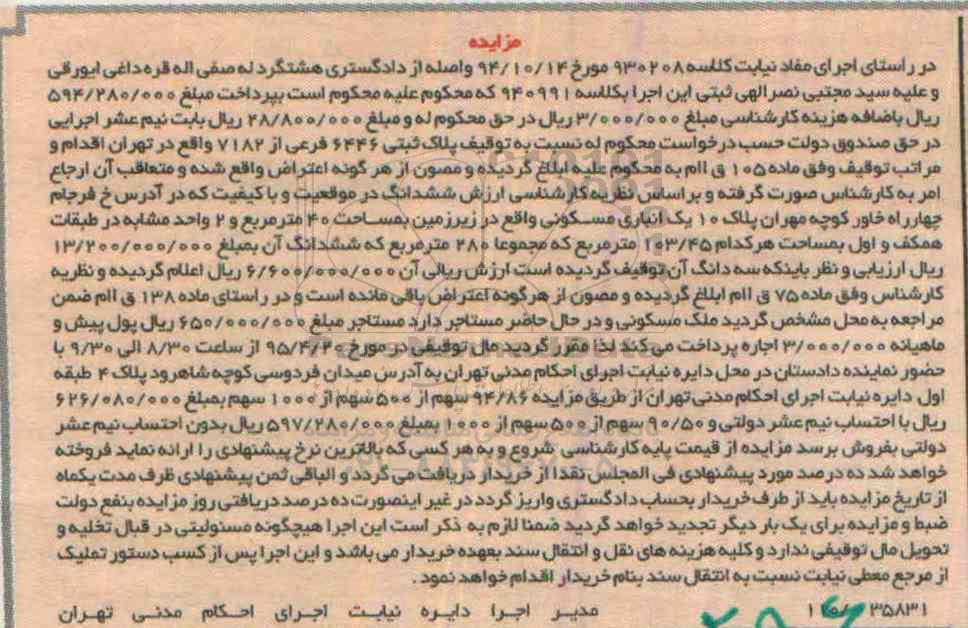 مزایده
در راستای اجرای مفاد نیابت کلاسه ۹۳۰۲۰۸ مورخ ۹۴/۱۰/۱۴ واصله از دادگستری هشتگرد له صفی اله قره داغی ایورقی
و علیه سید مجتبی نصرالهی ثبتی این اجرا بکلاسه ۹۴۰۹۹۱ که محکوم علیه محکوم است بپرداخت مبلغ ۵۹۴/۲۸۰/۰۰۰
ریال باضافه هزینه کارشناسی مبلغ ۳/۰۰۰/۰۰۰ ریال در حق محکوم له و مبلغ ۲۸/۸۰۰/۰۰۰ ریال بابت نیم عشر اجرایی
در حق صندوق دولت حسب درخواست محکوم له نسبت به توقیف پلاک ثبتی ۶۴۴۶ فرعی از ۷۱۸۲ واقع در تهران اقدام و
مراتب توقیف وفق ماده ۱۰۵ ق اام به محکوم علیه ابلاغ گردیده و مصون از هر گونه اعتراض واقع شده و متعاقب آن ارجاع
امر به کارشناس صورت گرفته و بر اساس نظریه کارشناسی ارزش ششدانگ در موقعیت و با کیفیت که در آدرس خ فرجام
چهارراه خاور کوچه مهران پلاک ۱۰ یک انباری مسکونی واقع در زیرزمین بمساحت ۴۰ مترمربع و ۲ واحد مشابه در طبقات
همکف و اول بمساحت هرکدام ۱۰۳/۴۵ مترمربع که مجموعا ۲۸۰ مترمربع که ششدانگ آن بمبلغ ۱۳/۲۰۰/۰۰۰/۰۰۰
ریال ارزیابی و نظر باینکه سه دانگ آن توقیف گردیده است ارزش ریالی آن ۶/۶۰۰/۰۰۰/۰۰۰ ریال اعلام گردیده و نظریه
کارشناس وفق ماده ۷۵ ق اام ابلاغ گردیده و مصون از هرگونه اعتراض باقی مانده است و در راستای ماده ۱۳۸ ق اام ضمن
مراجعه به محل مشخص گردید ملک مسکونی و در حال حاضر مستاجر دارد مستاجر مبلغ ۶۵۰/۰۰۰/۰۰۰ ریال پول پیش و
ماهیانه ۳/۰۰۰/۰۰۰ اجاره پرداخت می کند لذا مقرر گردید مال توقیفی در مورخ ۹۵/۴/۲۰ از ساعت ۸/۳۰ الی ۹/۳۰ با
حضور نماینده دادستان در محل دایره نیابت اجرای احکام مدنی تهران به آدرس میدان فردوسی کوچه شاهرود پلاک ۴ طبقه
اول دایره نیابت اجرای احکام مدنی تهران از طریق مزایده ۹۴/۸۶ سهم از ۵۰۰ سهم از ۱۰۰۰ سهم بمبلغ ۶۲۶/۰۸۰/۰۰۰
ریال با احتساب نیم عشر دولتی و ۹۰/۵۰ سهم از ۵۰۰ سهم از ۱۰۰۰ بمبلغ ۵۹۷/۲۸۰/۰۰۰ ریال بدون احتساب نیم عشر
دولتی بفروش برسد مزایده از قیمت پایه کارشناسی شروع و به هر کسی که بالاترین نرخ پیشنهادی را ارائه نماید فروخته
خواهد شد ده درصد مورد پیشنهادی فی المجلس نقدا از خریدار دریافت می گردد و الباقی ثمن پیشنهادی ظرف مدت یکماه
از تاریخ مزایده باید از طرف خریدار بحساب دادگستری واریز گردد در غیر اینصورت ده درصد دریافتی روز مزایده بنفع دولت
ضبط و مزایده برای یک بار دیگر تجدید خواهد گردید ضمنا لازم به ذکر است این اجرا هیچگونه مسئولیتی در قبال تخلیه و
تحویل مال توقیفی ندارد و کلیه هزینه های نقل و انتقال سند بعهده خریدار می باشد و این اجرا پس از کسب دستور تملیک
از مرجع معطی نیابت نسبت به انتقال سند بنام خریدار اقدام خواهد نمود .
مدیر اجرا دایره نیابت اجرای احکام مدنی تهران